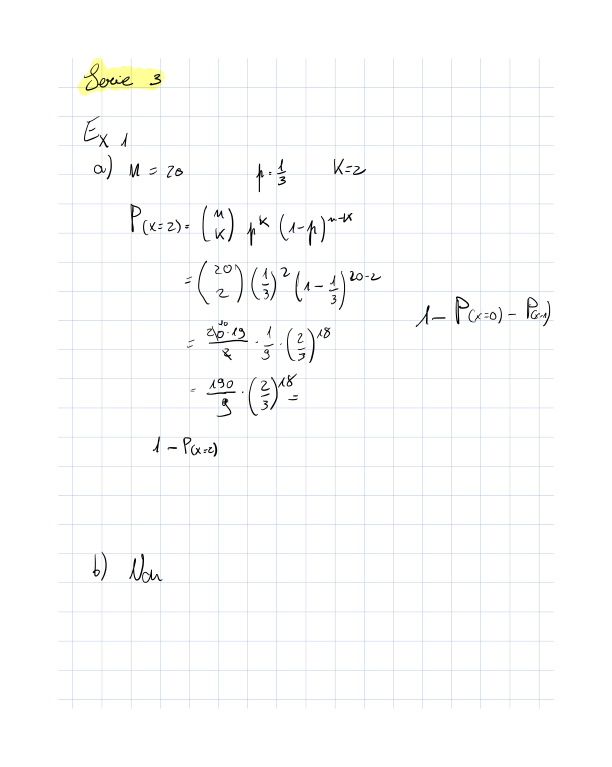 Serie 3
Ex 1
a) n = 20 p = 1/3 K=2
P(x=2) = (n K) p^K (1-p)^n-K
= (20 2) (1/3)^2 (1 - 1/3)^20-2
1 - P(x=0) - P(x=1)
= 20·19/2 · 1/9 · (2/3)^18
= 190/9 · (2/3)^18 =
1 - P(x=2)
b) Non